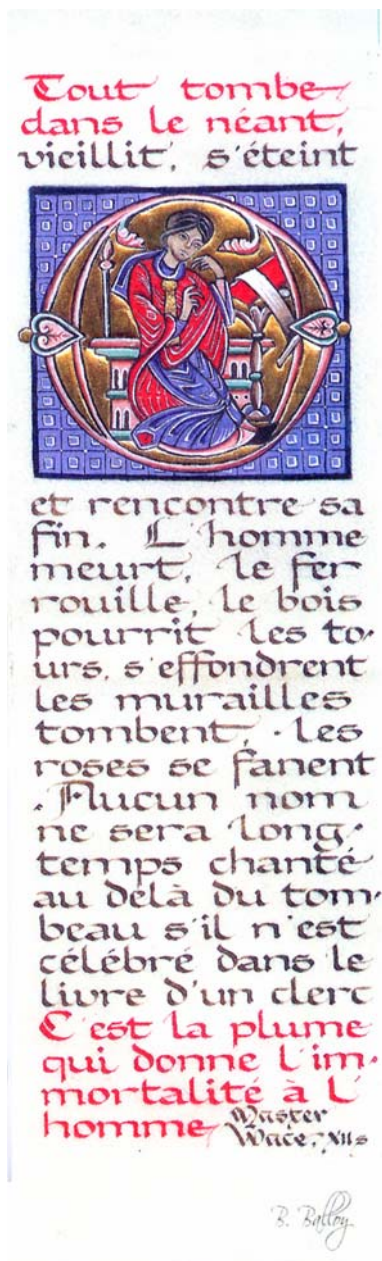 Tout tombe
dans le néant,
vieillit, s'éteint
et rencontre sa
fin. L'homme
meurt, le fer
rouille, le bois
pourrit les to-
urs, s'effondrent
les murailles
tombent, . les
roses se fanent
. Aucun nom
ne sera long-
temps chanté
au delà du tom-
beau s'il n'est
célébré dans le
livre d'un clerc
C'est la plume
qui donne l'im-
mortalité à l'
homme
Master
Wace, XII s
B. Balloy